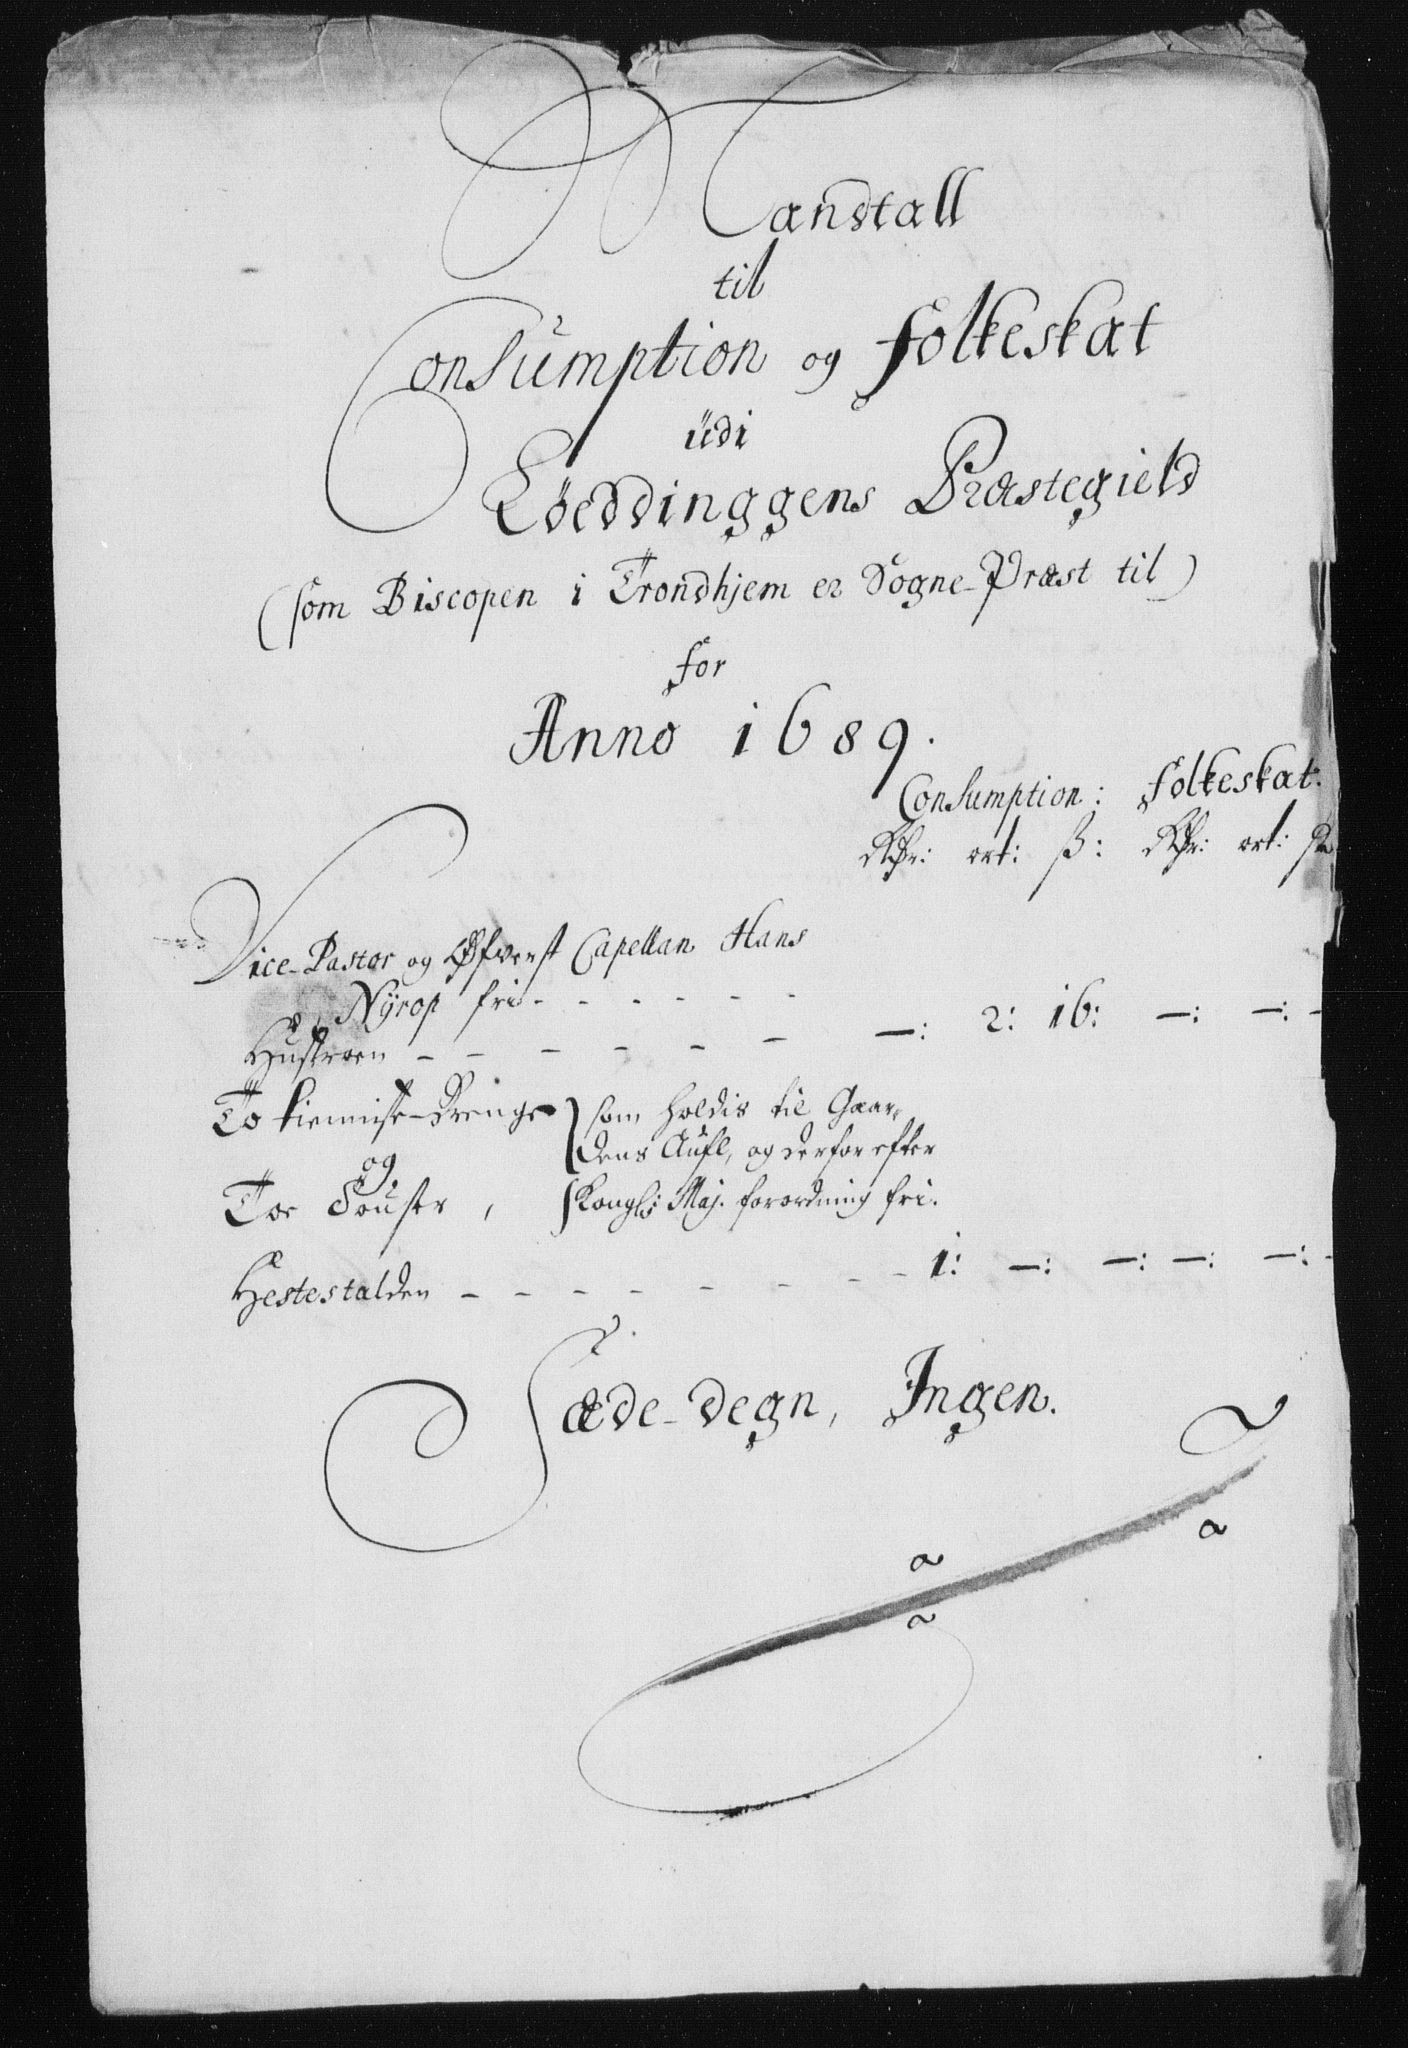 Mandtall
til
Consumption og folkeskat
üdi
Løeddinggens Præstegield
(som Biscopen i Trondhjem er Sogne-Præst til)
for
Anno 1689.
Consumption: folkeskat:
Rdr: ort: ß: Rdr: ort: ß
Vice-Pastor og Øfverst Capellan Hans
Nÿrop fri - - - - - -
Hustroen - - - - - - —: 2: 16: —: —: -
To tieniste-Drenge som holdis til Gaar-
dens Aufl, og derfor efter
og
Toe , Kongl: Maj. forordning fri.
Hestestalden - - - - - - - 1: —: —: —: —: -
Sæde-degn, Ingen.